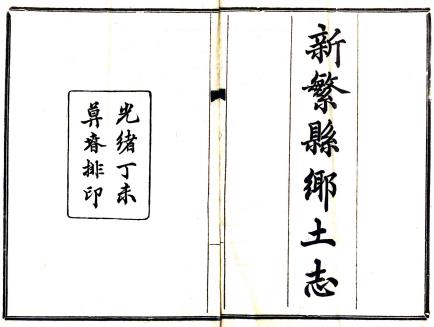 新繁縣鄉土志
光緒丁未
蕚春排印